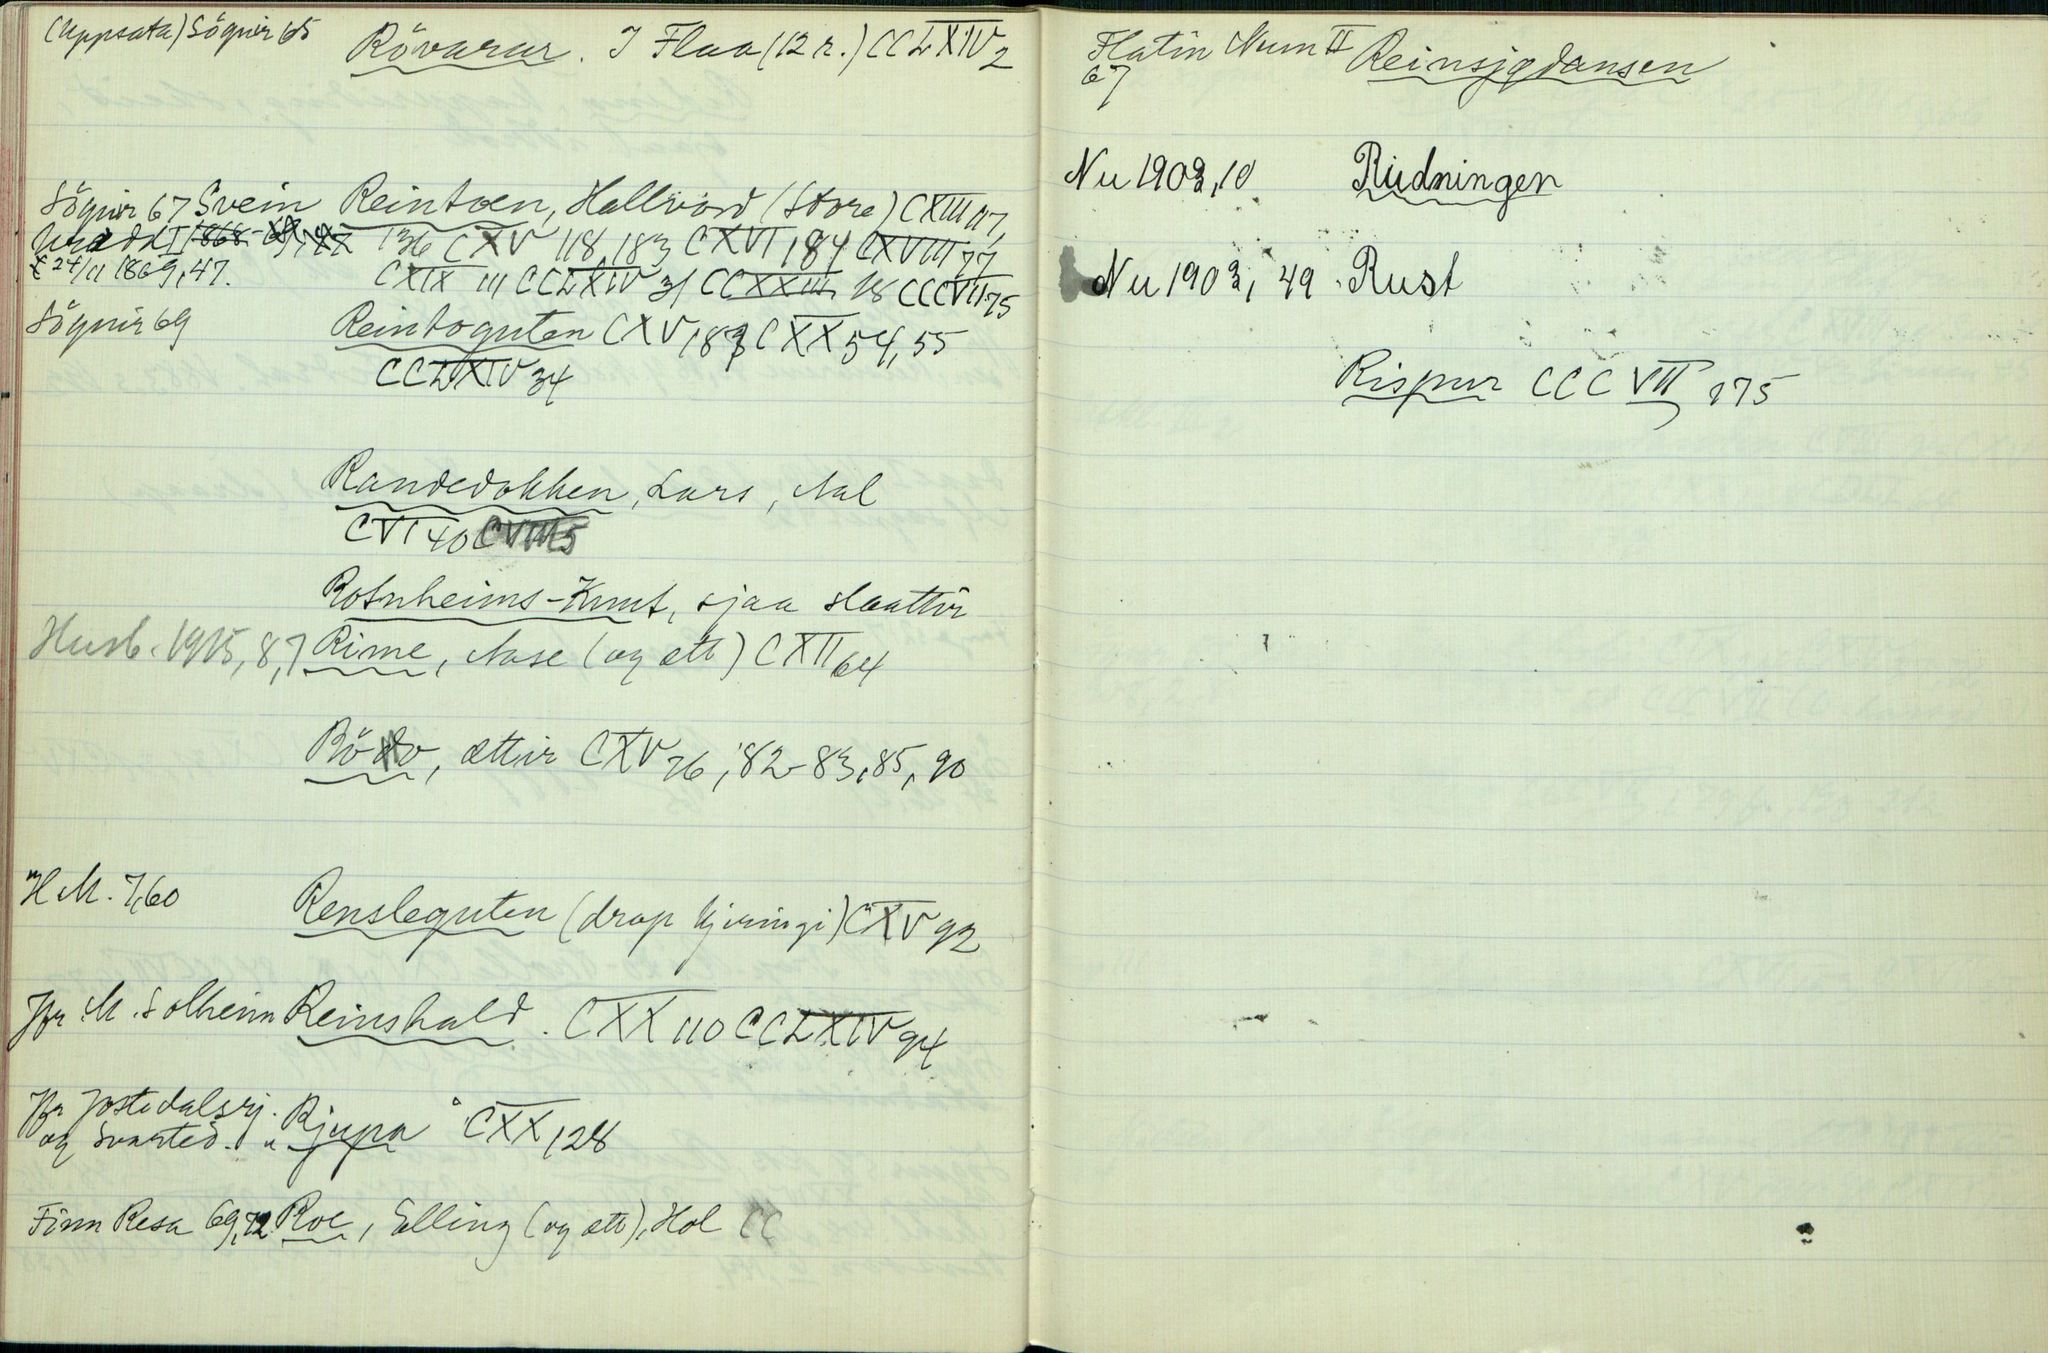 (Uppsata) Sögnir 65 Rövarar. I Flaa (12 r.) CCLXIV 2
Sögnir 67 Svein Reintoen, Hallvord (Store) CXIII 117,
136 CXV 118, 183 CXVI, 84 CXVIII 77
24/11 1869, 47. CXIX 111 CCLXIV 31 CCXXIII 18 CCCVII 75
Sögnir 69 Reintoguten CXV, 183 CXX 54, 55
CCLXIV 34
Randedokken, Lars, Aal
CVI 40 CVIII 5
Rotnheims-Knut, sjaa slaattir
Husb. 1915, 8,7 Rime, Aase (og ætt) CXII 64
Rödo, ættir CXV 76, 82-83, 85, 90
H M. 7,60 Rensleguten (drap kjeringi) CXV 92
Jfr M. Solheim Reinshald. CXX 110 CCLXIV 94
Jfr Jostedalsrj. og Svarted. "Rjupa" CXX, 128
Finn Resa 69,72 Roe, Elling (og ætt), Hol CC
Flatin Num II Reinsjødansen
67
Nu 1903, 10 Rudningen
Nu 1903, 49. Rust
Rispur CCCVII, 175